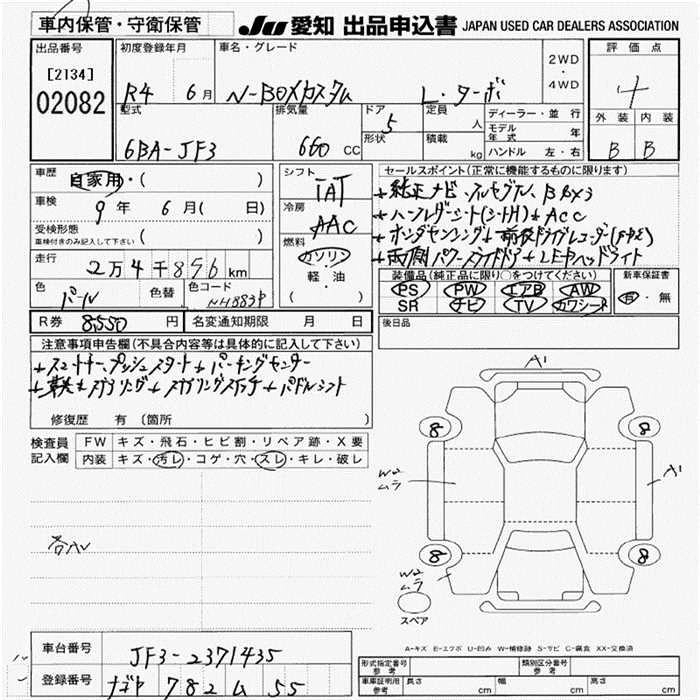 車内保管・守衛保管
JU 愛知 出品申込書 JAPAN USED CAR DEALERS ASSOCIATION
出品番号 初度登録年月 車名・グレード 2WD・4WD 評価点
[2134]
02082
R4 6月 N-BOXカスタム L・ターボ 4
型式 排気量 ドア 形状 定員 人 積載 kg
6BA-JF3 660 CC 5
ディーラー・並行
モデル年式 年
ハンドル 左・右
外装 内装
B B
車歴 自家用・( )
車検 9年 6月( 日)
受検形態 車検付きのみ記入して下さい ( )
走行 2万4千856km
色 パール 色替 色コード NH883P
シフト IAT
冷房 AAC
燃料 ガソリン・軽・油 ( )
セールスポイント(正常に機能するものに限ります)
+純正ナビ、フルセグTV、B
+ハーフレザーシート(シートH)+ACC
+ホンダセンシング+前後ドライブレコーダー
+両側パワースライドドア+LEDヘッドライト
装備品(純正品に限り○をつけてください) 新車保証書
PS PW エアB AW 有・無
SR ナビ TV カワシート
後日品
R券 8,550円 名変通知期限 月 日
注意事項申告欄(不具合内容等は具体的に記入して下さい)
+スマートキー、プッシュスタート+パーキングセンサー
+革巻きステアリング+ステアリングスイッチ+パドルシフト
修復歴 有(箇所 )
検査員記入欄 FW キズ・飛石・ヒビ割・リペア跡・X要
内装 キズ・汚レ・コゲ・穴・スレ・キレ・破レ
A1
8 8
W2
ムラ
A1
8 8
W2
ムラ
スペア
A-キズ E-エクボ U-凹み W-補修跡 S-サビ C-腐食 XX-交換済
車台番号 JF3-2371435
登録番号 ナゴヤ 782 ム 55
形式指定番号 参考 類別区分番号 参考
車庫証明用 参考 長さ cm 幅 cm 高さ cm